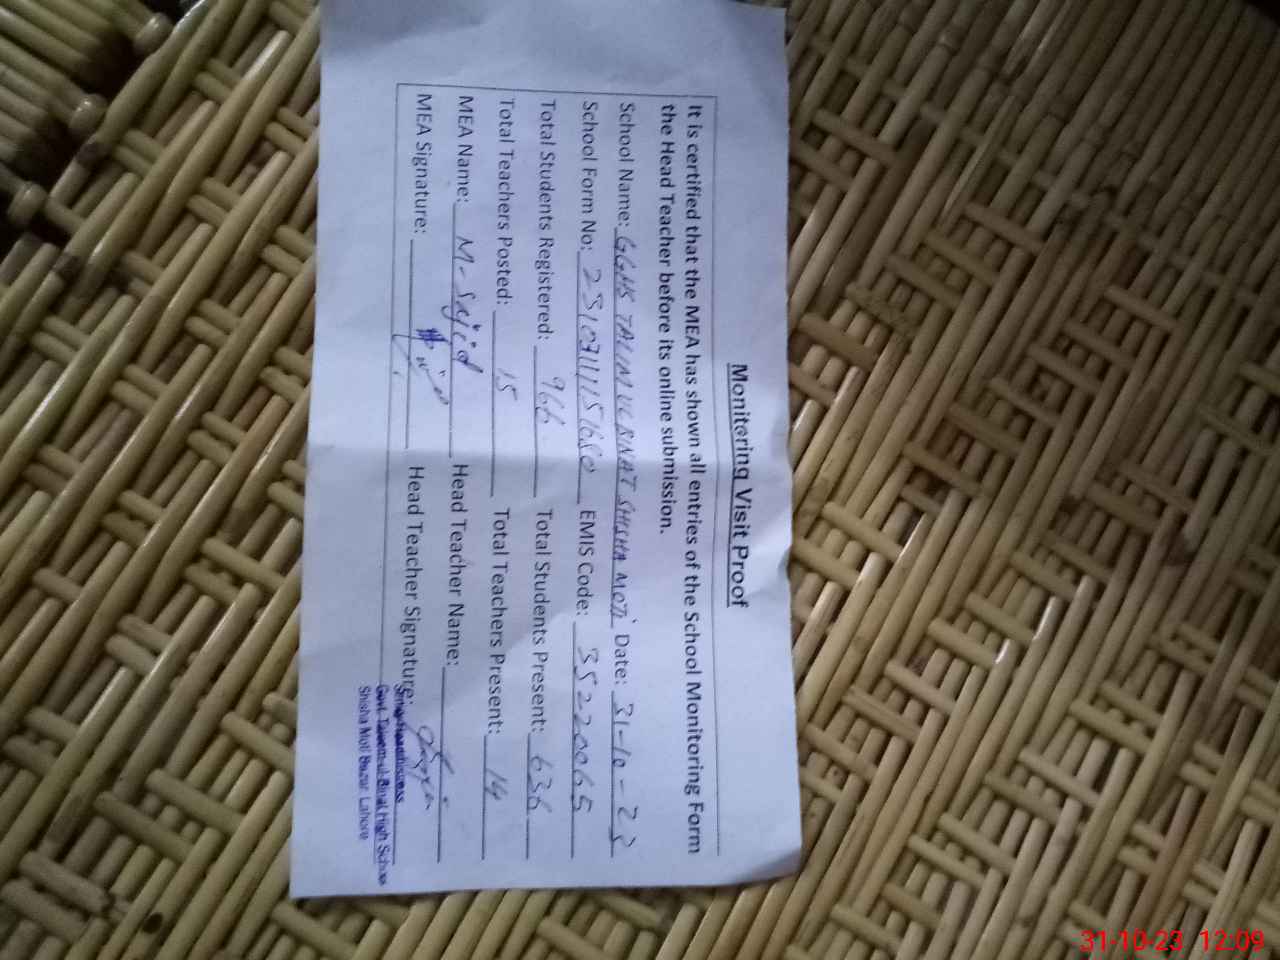 Monitoring Visit Proof
It is certified that the MEA has shown all entries of the School Monitoring Form
the Head Teacher before its online submission.
School Name: GGHS TALIM UL BINAT SHISHA MOTI Date: 31-10-23
School Form No: EMIS Code: 35220065
Total Students Registered: 966 Total Students Present: 636
Total Teachers Posted: 15 Total Teachers Present: 14
MEA Name: M-Sajid Head Teacher Name:
MEA Signature: Head Teacher Signature:
Govt. Taleem-ul-Binat High School
Shisha Moti Bazar Lahore
31-10-23 12:09